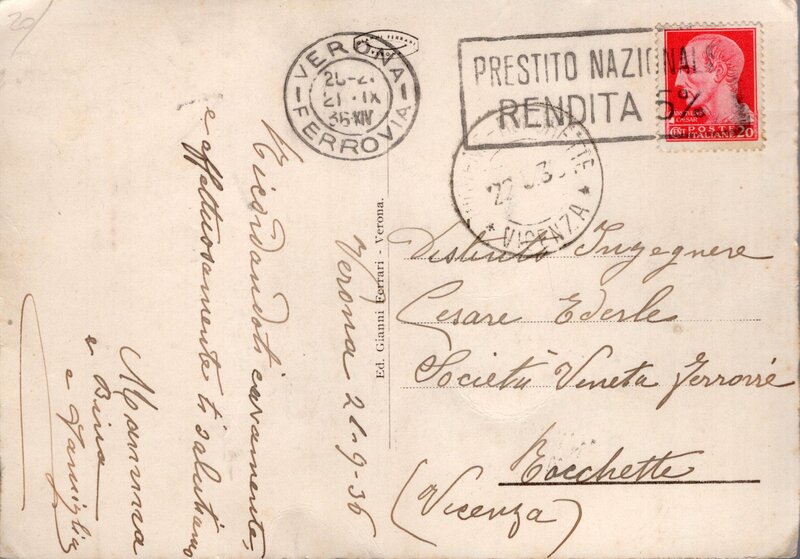 20/
VERONA
20-21
21 IX
36 XIV
FERROVIA
GIANNI FERRARI
PRESTITO NAZIONALE
RENDITA 5%
POSTE
CENT ITALIANE 20
CAESAR
ROCCHETTE
22. 9. 36
* VICENZA *
Ed. Gianni Ferrari - Verona.
Verona 21-9-36
Ricordandoti caramente,
e affettuosamente ti salutiamo
Mamma
e Bina
e Famiglia
Distinto Ingegnere
Cesare Ederle
Società Veneta Ferrovie
Rocchette
(Vicenza)